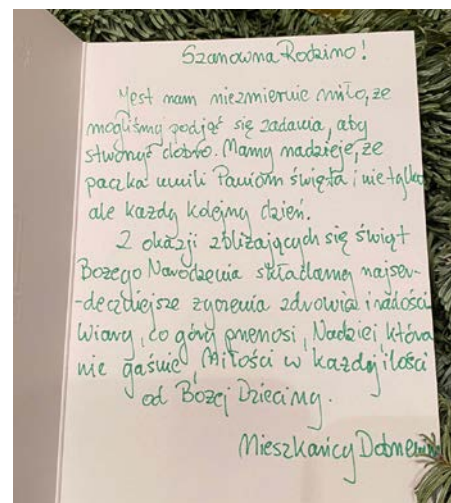 Szanowna Rodzino!
Jest nam niezmiernie miło, że
mogliśmy podjąć się zadania, aby
stworzyć dobro. Mamy nadzieję, że
paczka umili Paniom święta i nie tylko
ale każdy kolejny dzień.
Z okazji zbliżających się świąt
Bożego Narodzenia składamy najser-
-deczniejsze życzenia zdrowia i radości
Wiary, co góry przenosi, Nadziei która
nie gaśnie, Miłości w każdej ilości
od Bożej Dzieciny.
Mieszkańcy